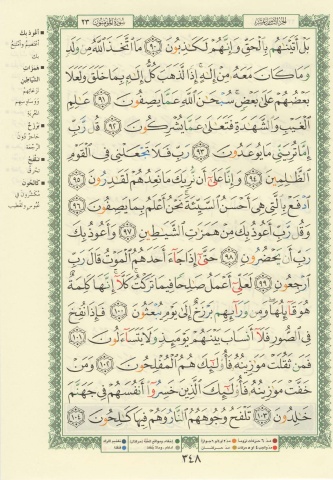 سورة المؤمنون ٢٣
بَلْ أَتَيْنَٰهُم بِٱلْحَقِّ وَإِنَّهُمْ لَكَٰذِبُونَ ﴿٩٠﴾ مَا ٱتَّخَذَ ٱللَّهُ مِن وَلَدٍ
وَمَا كَانَ مَعَهُۥ مِنْ إِلَٰهٍ ۚ إِذًا لَّذَهَبَ كُلُّ إِلَٰهٍۭ بِمَا خَلَقَ وَلَعَلَا
بَعْضُهُمْ عَلَىٰ بَعْضٍ ۚ سُبْحَٰنَ ٱللَّهِ عَمَّا يَصِفُونَ ﴿٩١﴾ عَٰلِمِ
ٱلْغَيْبِ وَٱلشَّهَٰدَةِ فَتَعَٰلَىٰ عَمَّا يُشْرِكُونَ ﴿٩٢﴾ قُل رَّبِّ
إِمَّا تُرِيَنِّى مَا يُوعَدُونَ ﴿٩٣﴾ رَبِّ فَلَا تَجْعَلْنِى فِى ٱلْقَوْمِ
ٱلظَّٰلِمِينَ ﴿٩٤﴾ وَإِنَّا عَلَىٰٓ أَن نُّرِيَكَ مَا نَعِدُهُمْ لَقَٰدِرُونَ ﴿٩٥﴾
ٱدْفَعْ بِٱلَّتِى هِىَ أَحْسَنُ ٱلسَّيِّئَةَ ۚ نَحْنُ أَعْلَمُ بِمَا يَصِفُونَ ﴿٩٦﴾
وَقُل رَّبِّ أَعُوذُ بِكَ مِنْ هَمَزَٰتِ ٱلشَّيَٰطِينِ ﴿٩٧﴾ وَأَعُوذُ بِكَ
رَبِّ أَن يَحْضُرُونِ ﴿٩٨﴾ حَتَّىٰٓ إِذَا جَآءَ أَحَدَهُمُ ٱلْمَوْتُ قَالَ رَبِّ
ٱرْجِعُونِ ﴿٩٩﴾ لَعَلِّىٓ أَعْمَلُ صَٰلِحًا فِيمَا تَرَكْتُ ۚ كَلَّآ ۚ إِنَّهَا كَلِمَةٌ
هُوَ قَآئِلُهَا ۖ وَمِن وَرَآئِهِم بَرْزَخٌ إِلَىٰ يَوْمِ يُبْعَثُونَ ﴿١٠٠﴾ فَإِذَا نُفِخَ
فِى ٱلصُّورِ فَلَآ أَنسَابَ بَيْنَهُمْ يَوْمَئِذٍ وَلَا يَتَسَآءَلُونَ ﴿١٠١﴾
فَمَن ثَقُلَتْ مَوَٰزِينُهُۥ فَأُو۟لَٰٓئِكَ هُمُ ٱلْمُفْلِحُونَ ﴿١٠٢﴾ وَمَنْ
خَفَّتْ مَوَٰزِينُهُۥ فَأُو۟لَٰٓئِكَ ٱلَّذِينَ خَسِرُوٓا۟ أَنفُسَهُمْ فِى جَهَنَّمَ
خَٰلِدُونَ ﴿١٠٣﴾ تَلْفَحُ وُجُوهَهُمُ ٱلنَّارُ وَهُمْ فِيهَا كَٰلِحُونَ ﴿١٠٤﴾
٣٤٨
أعوذ بك
أعتصم وأمتنع
بك
همزات
الشياطين
نزغاتهم
ووساوسهم
المغرية
برزخ
حاجز دون
الرجعة
تلفح
تحرق
كالحون